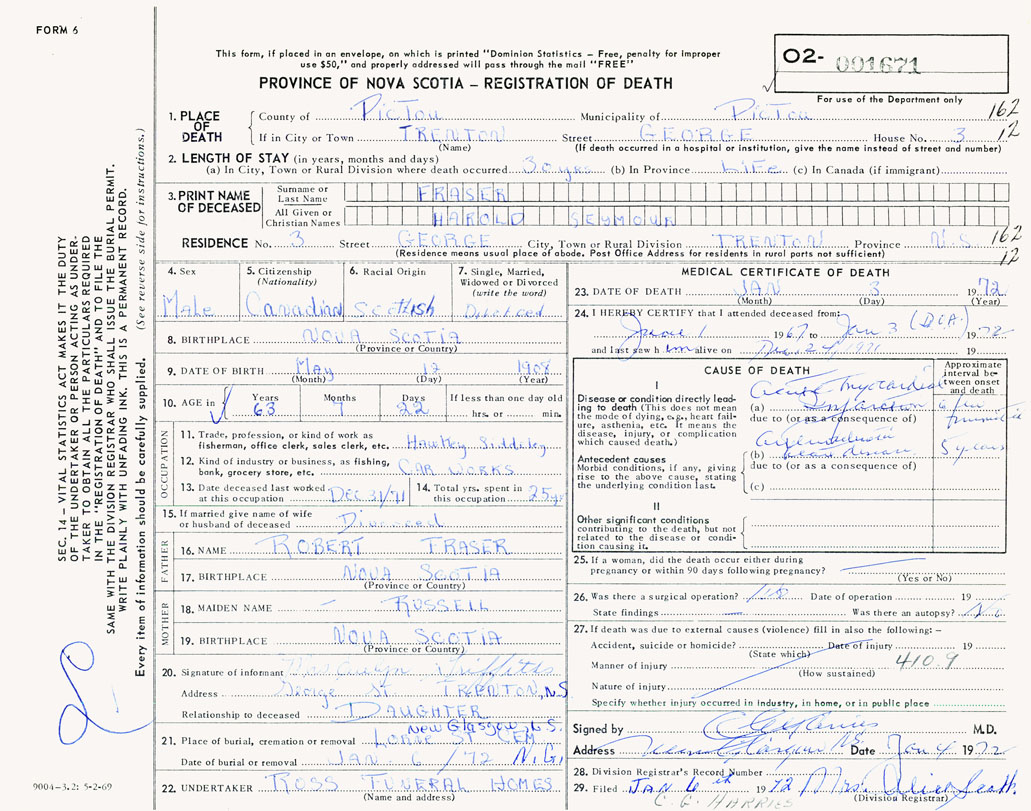 FORM 6
This form, if placed in an envelope, on which is printed "Dominion Statistics – Free, penalty for improper
use $50," and properly addressed will pass through the mail "FREE"
PROVINCE OF NOVA SCOTIA – REGISTRATION OF DEATH
O2- 001671
For use of the Department only
1. PLACE OF DEATH
County of PicTou Municipality of PicTou 162
If in City or Town TRENTON Street GEORGE House No. 3 12
(Name) (If death occurred in a hospital or institution, give the name instead of street and number)
2. LENGTH OF STAY (in years, months and days)
(a) In City, Town or Rural Division where death occurred 30 yrs (b) In Province LiFe (c) In Canada (if immigrant)
3. PRINT NAME OF DECEASED
Surname or Last Name FRASER
All Given or Christian Names HAROLD SEYMOUR
RESIDENCE No. 3 Street GEORGE City, Town or Rural Division TRENTON Province N.S 162
(Residence means usual place of abode. Post Office Address for residents in rural parts not sufficient) 12
4. Sex
Male
5. Citizenship
(Nationality)
Canadian
6. Racial Origin
Scottish
7. Single, Married,
Widowed or Divorced
(write the word)
Divorced
8. BIRTHPLACE NOVA SCOTIA
(Province or Country)
9. DATE OF BIRTH May 12 1908
(Month) (Day) (Year)
10. AGE in Years Months Days If less than one day old
63 7 22 hrs. or min.
OCCUPATION
11. Trade, profession, or kind of work as
fisherman, office clerk, sales clerk, etc. Hawkey Siddeley
12. Kind of industry or business, as fishing,
bank, grocery store, etc. CAR WORKS
13. Date deceased last worked
at this occupation DEC 31/71
14. Total yrs. spent in
this occupation 25 yr
15. If married give name of wife
or husband of deceased Divorced
FATHER
16. NAME ROBERT FRASER
17. BIRTHPLACE NOVA SCOTIA
(Province or Country)
MOTHER
18. MAIDEN NAME – RUSSELL
19. BIRTHPLACE NOVA SCOTIA
(Province or Country)
20. Signature of informant Mrs Evelyn Griffiths
Address George St. TRENTON, N.S
Relationship to deceased DAUGHTER
New Glasgow, N.S.
21. Place of burial, cremation or removal CEM
Date of burial or removal JAN 6 /72 N.G.
22. UNDERTAKER ROSS FUNERAL HOMES
(Name and address)
MEDICAL CERTIFICATE OF DEATH
23. DATE OF DEATH JAN 3 1972
(Month) (Day) (Year)
24. I HEREBY CERTIFY that I attended deceased from:
June 1 1967 to Jan 3 (DOA) 1972
and last saw him alive on Dec 24, 1971 19
CAUSE OF DEATH
Approximate interval between onset and death
I
Disease or condition directly leading to death (This does not mean the mode of dying, e.g., heart failure, asthenia, etc. It means the disease, injury, or complication which caused death.)
(a) Acute Myocardial Infarction a few minutes
due to (or as a consequence of)
Antecedent causes
Morbid conditions, if any, giving rise to the above cause, stating the underlying condition last.
(b) heart disease 5 years
due to (or as a consequence of)
(c)
II
Other significant conditions
contributing to the death, but not related to the disease or condition causing it.
25. If a woman, did the death occur either during
pregnancy or within 90 days following pregnancy?
(Yes or No)
26. Was there a surgical operation? No Date of operation 19
State findings – Was there an autopsy? No
27. If death was due to external causes (violence) fill in also the following: –
Accident, suicide or homicide? Date of injury 19
(State which)
Manner of injury 410.9
(How sustained)
Nature of injury
Specify whether injury occurred in Industry, in home, or in public place
Signed by M.D.
Address New Glasgow NS Date Jan 4 1972
28. Division Registrar's Record Number
29. Filed JAN 6th 1972 Mrs. Alice Scott
C. E. HARRIES (Division Registrar)
SEC. 14 – VITAL STATISTICS ACT MAKES IT THE DUTY
OF THE UNDERTAKER OR PERSON ACTING AS UNDER-
TAKER TO OBTAIN ALL THE PARTICULARS REQUIRED
IN THE "REGISTRATION OF DEATH" AND TO FILE THE
SAME WITH THE DIVISION REGISTRAR WHO SHALL ISSUE THE BURIAL PERMIT.
WRITE PLAINLY WITH UNFADING INK. THIS IS A PERMANENT RECORD.
Every item of information should be carefully supplied. (See reverse side for instructions.)
9004-3.2: 5-2-69